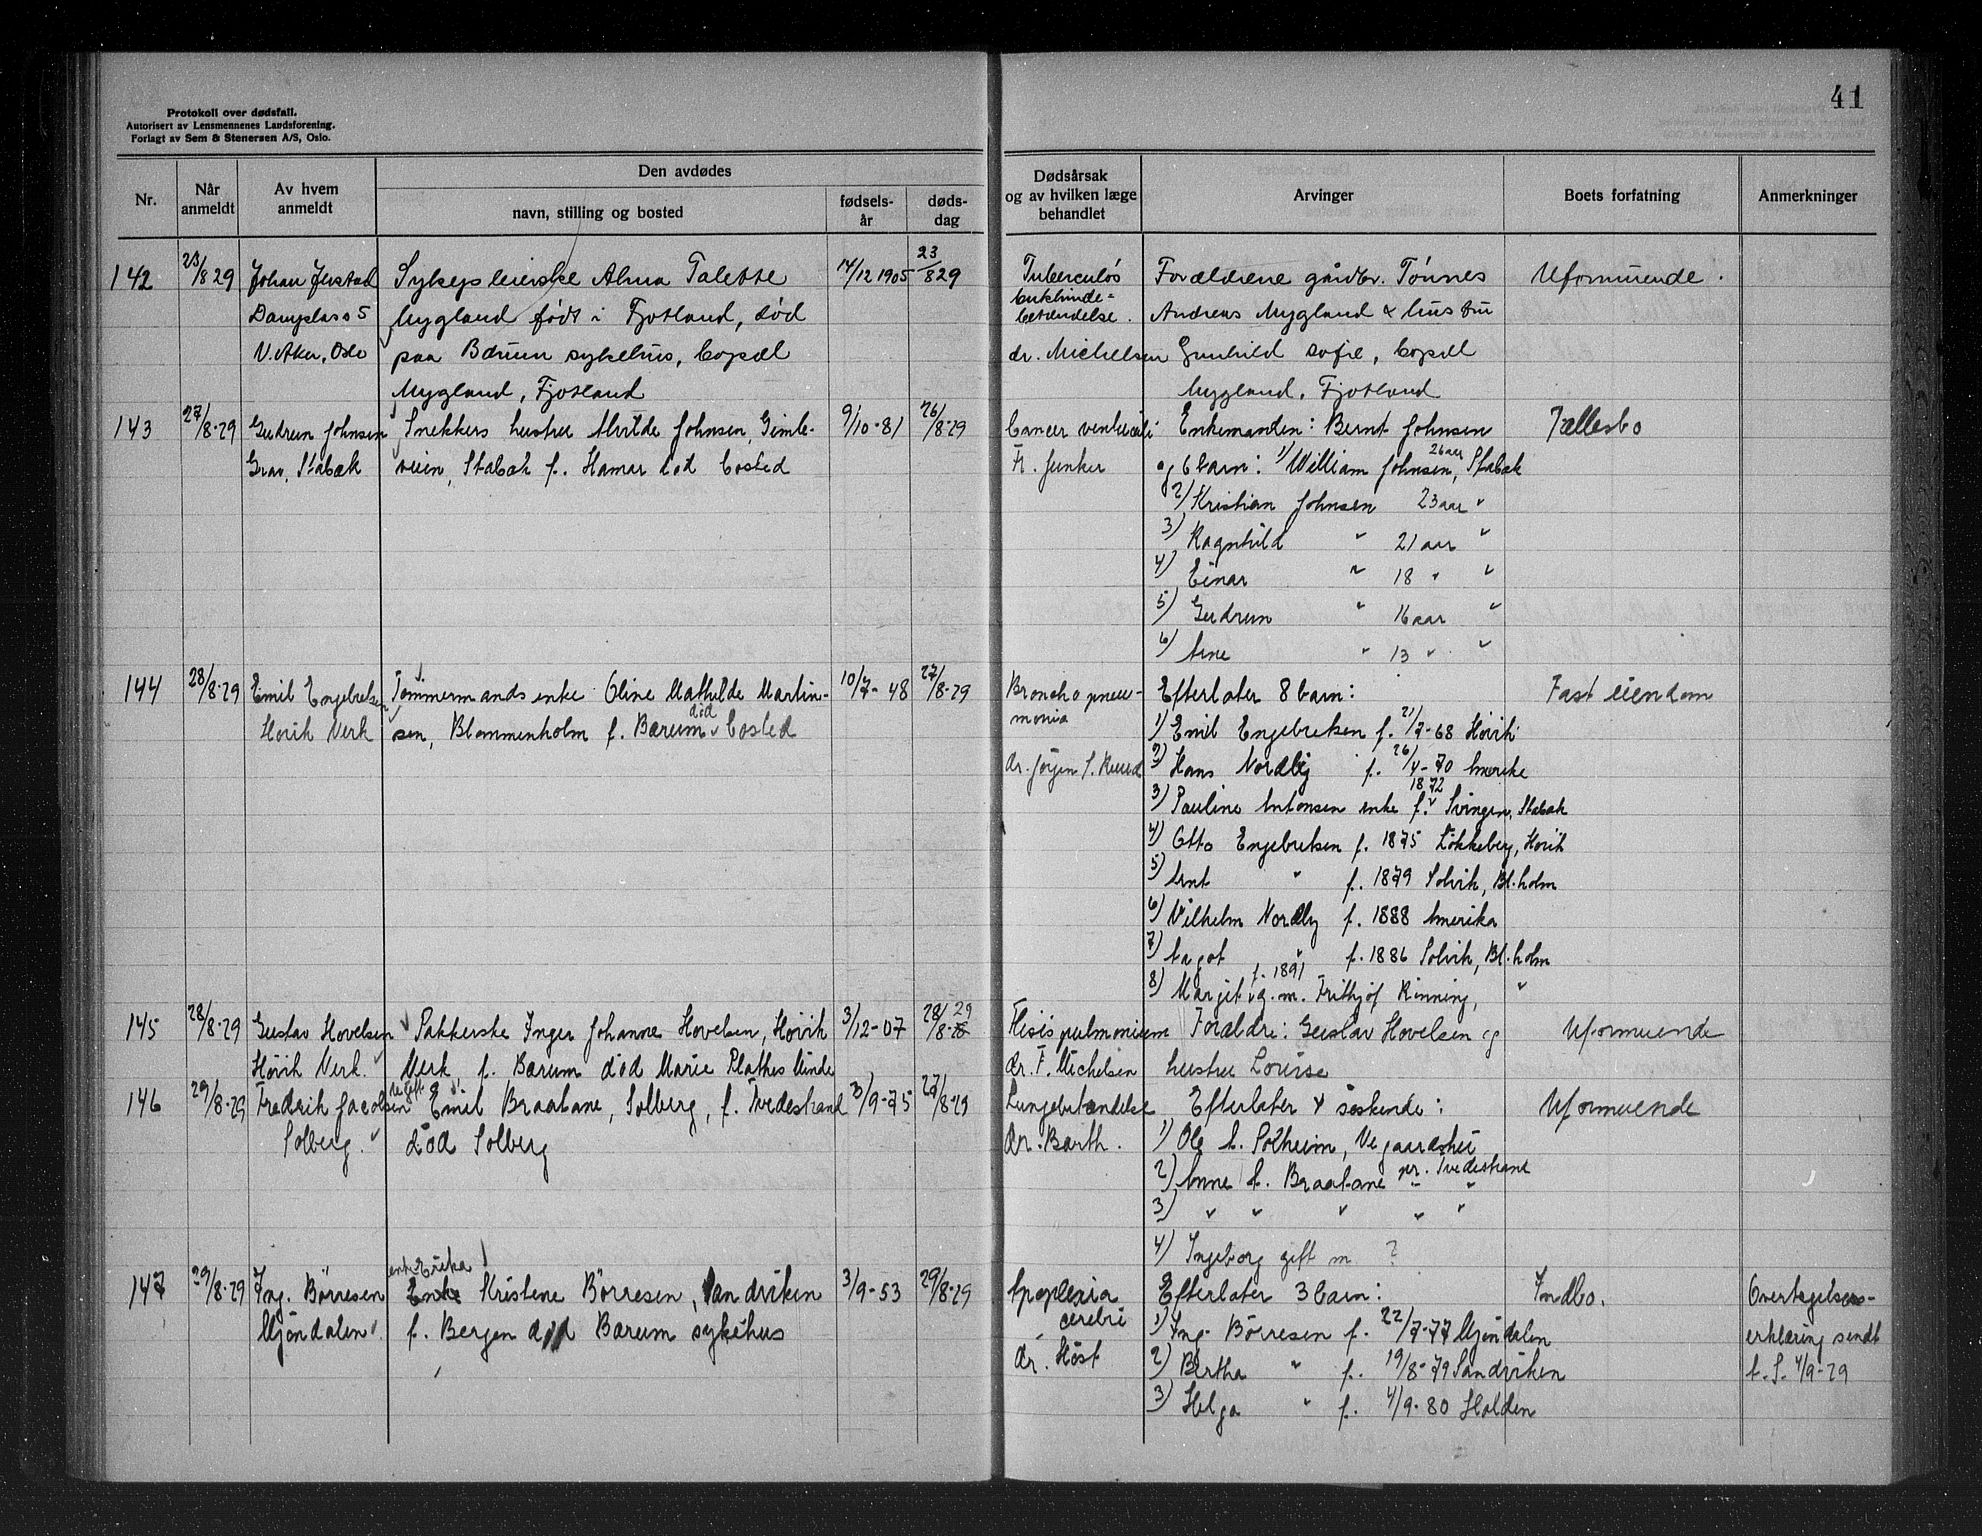 Protokoll over dødsfall.
Autorisert av Lensmennenes Landsforening.
Forlagt av Sem & Stenersen A/S, Oslo.
41
Nr.
Når anmeldt
Av hvem anmeldt
Den avdødes
navn, stilling og bosted
fødsels-år
døds-dag
Dødsårsak og av hvilken læge behandlet
Arvinger
Boets forfatning
Anmerkninger
142
23/8 29
Johan
V. Aker, Oslo
Sykepleierske Alma Talette
Mygland født i Fjotland, død
paa Bærum sykehus, bopæl
Mygland, Fjotland
14/12 1905
23/8 29
Tuberculøs
bukhinde-
betændelse.
dr. Michelsen
Forældrene gårdbr. Tønnes
Andreas Mygland & hustru
Gunhild Sofie, bopæl
Mygland, Fjotland
Uformuende.
143
27/8-29
Gudrun Johnsen
Grav, Stabæk
Snekkers hustru Alvilde Johnsen, Gimle-
veien, Stabæk f. Hamar død bosted
9/10-81
26/8-29
Cancer ventriculi
Fr. Junker
Enkemanden: Bernt Johnsen
og 6 barn: 1) William Johnsen, 26 aar Stabæk
2) Kristian Johnsen 23 aar "
3) Ragnhild " 21 aar "
4) Einar " 18 " "
5) Gudrun " 16 aar "
6) Arne " 13 " "
Fællesbo
144
28/8-29
Emil Engebretsen
Høvik Verk
Tømmermands enke Oline Mathilde Martin-
sen, Blommenholm f. Bærum død bosted
10/7-48
27/8-29
Broncho pneu-
monia
dr. Jørgen S. Ruud
Efterlater 8 barn:
1) Emil Engebretsen f. 21/7-68 Høvik
2) Hans Nordby f. 26/4-70 Amerika
3) Pauline Antonsen enke f. 1872 Svingen, Stabæk
4) Otto Engebretsen f. 1875 Løkkeberg, Høvik
5) Arnt " f. 1879 Solvik, Bl.holm
6) Vilhelm Nordby f. 1888 Amerika
7) Aagot " f. 1886 Solvik, Bl.holm
8) Margit f. 1891 g.m. Frithjof Rinning, "
Fast eiendom
145
28/8-29
Gustav Hovelsen
Høvik Verk.
Pakkerske Inger Johanne Hovelsen, Høvik
Verk f. Bærum død Marie Plathes Minde
3/12-07
28/8-29
Ftisis pulmonum
dr. F. Michelsen
Forældre: Gustav Hovelsen og
hustru Lovise
Uformuende
146
29/8-29
Fredrik Jacobsen
Solberg.
Emil Braatane, Solberg, f. Tvedestrand
død Solberg
3/9-75
27/8-29
Lungebetændelse
dr. Barth.
Efterlater 4 søskende:
1) Ole A. Solheim, Vegaardshei
2) Anne A. Braatane pr. Tvedestrand
3) " " " " "
4) Ingeborg gift m ?
Uformuende
147
29/8-29
Ing. Børresen
Mjøndalen
enke Erika
Kristene Børresen, Sandviken
f. Bergen død Bærum sykehus
3/9-53
29/8-29
Apoplexia
cerebri
dr. Høst
Efterlater 3 barn:
1) Ing. Børresen f. 22/7-77 Mjøndalen
2) Bertha " f. 19/8-79 Sandviken
3) Helga " f. 4/9-80 Halden
Indbo.
Overtagelses-
erklæring sendt
t. S. 4/9-29